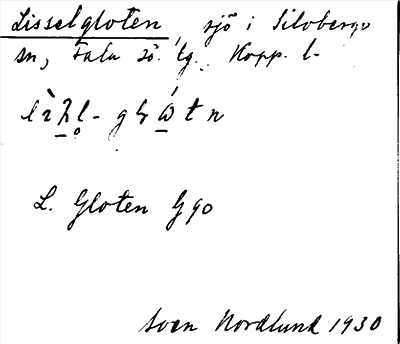 Lisselgloten, sjö i Silvbergs
sn, Falu sö. lg. Kopp. l-
L. Gloten Ggo
Sven Nordlund 1930